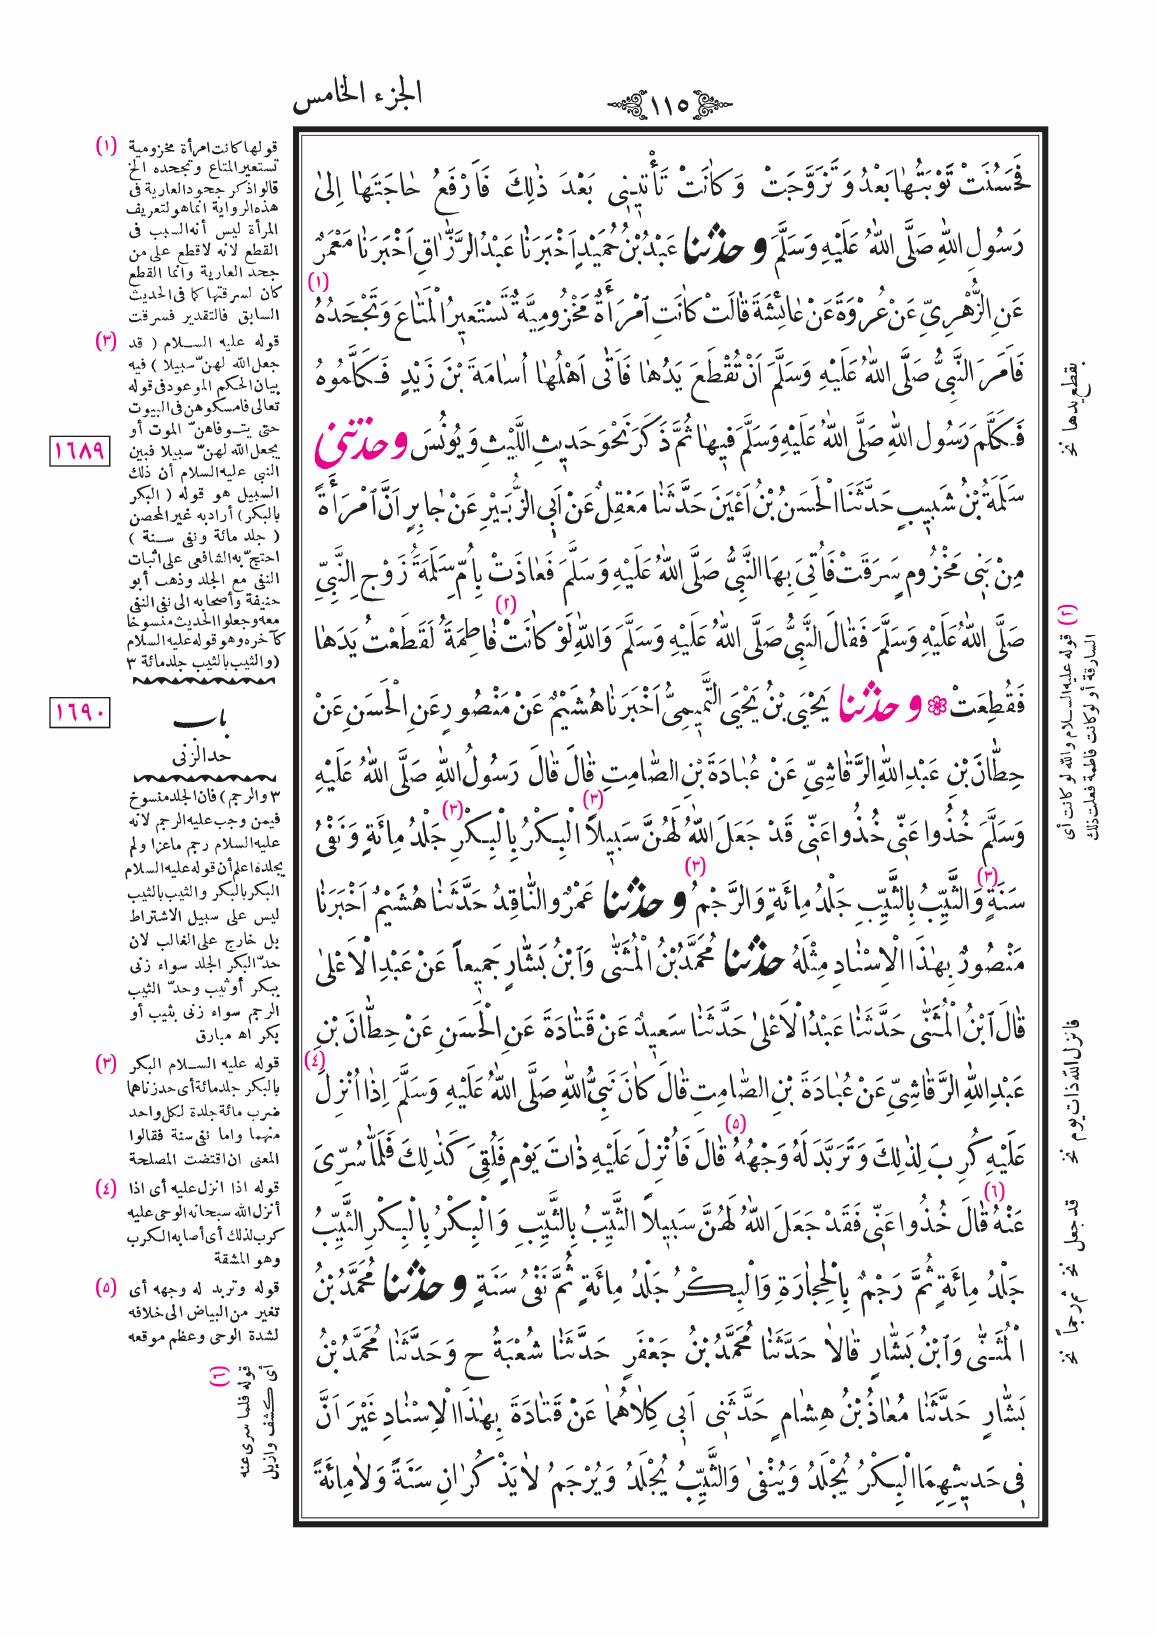 الجزء الخامس
١١٥
فَحَسُنَتْ تَوْبَتُهَا بَعْدُ وَتَزَوَّجَتْ وَكَانَتْ تَأْتِينِي بَعْدَ ذٰلِكَ فَأَرْفَعُ حَاجَتَهَا اِلىٰ
رَسُولِ اللهِ صَلَّى اللهُ عَلَيْهِ وَسَلَّمَ وحَدَّثَنَا عَبْدُ بْنُ حُمَيْدٍ اَخْبَرَنَا عَبْدُ الرَّزَّاقِ اَخْبَرَنَا مَعْمَرٌ
عَنِ الزُّهْرِىِّ عَنْ عُرْوَةَ عَنْ عَائِشَةَ قَالَتْ كَانَتِ امْرَأَةٌ مَخْزُومِيَّةٌ تَسْتَعِيرُ الْمَتَاعَ وَتَجْحَدُهُ (١)
فَاَمَرَ النَّبِىُّ صَلَّى اللهُ عَلَيْهِ وَسَلَّمَ اَنْ تُقْطَعَ يَدُهَا فَاَتٰى اَهْلُهَا اُسَامَةَ بْنَ زَيْدٍ فَكَلَّمُوهُ
فَكَلَّمَ رَسُولَ اللهِ صَلَّى اللهُ عَلَيْهِ وَسَلَّمَ فِيهَا ثُمَّ ذَكَرَ نَحْوَ حَدِيثِ اللَّيْثِ وَيُونُسَ وحَدَّثَنِى
سَلَمَةُ بْنُ شَبِيبٍ حَدَّثَنَا الْحَسَنُ بْنُ اَعْيَنَ حَدَّثَنَا مَعْقِلٌ عَنْ اَبِى الزُّبَيْرِ عَنْ جَابِرٍ اَنَّ امْرَأَةً
مِنْ بَنِى مَخْزُومٍ سَرَقَتْ فَاُتِىَ بِهَا النَّبِىُّ صَلَّى اللهُ عَلَيْهِ وَسَلَّمَ فَعَاذَتْ بِاُمِّ سَلَمَةَ زَوْجِ النَّبِىِّ
صَلَّى اللهُ عَلَيْهِ وَسَلَّمَ فَقَالَ النَّبِىُّ صَلَّى اللهُ عَلَيْهِ وَسَلَّمَ وَاللهِ لَوْ كَانَتْ (٢) فَاطِمَةُ لَقَطَعْتُ يَدَهَا
فَقُطِعَتْ ۞ وحَدَّثَنَا يَحْيَى بْنُ يَحْيَى التَّمِيمِىُّ اَخْبَرَنَا هُشَيْمٌ عَنْ مَنْصُورٍ عَنِ الْحَسَنِ عَنْ
حِطَّانَ بْنِ عَبْدِ اللهِ الرَّقَاشِىِّ عَنْ عُبَادَةَ بْنِ الصَّامِتِ قَالَ قَالَ رَسُولُ اللهِ صَلَّى اللهُ عَلَيْهِ
وَسَلَّمَ خُذُوا عَنِّى خُذُوا عَنِّى قَدْ جَعَلَ اللهُ لَهُنَّ سَبِيلاً (٣) الْبِكْرُ بِالْبِكْرِ (٣) جَلْدُ مِائَةٍ وَنَفْىُ
سَنَةٍ (٣) وَالثَّيِّبُ بِالثَّيِّبِ جَلْدُ مِائَةٍ وَالرَّجْمُ (٣) وحَدَّثَنَا عَمْرٌو النَّاقِدُ حَدَّثَنَا هُشَيْمٌ اَخْبَرَنَا
مَنْصُورٌ بِهٰذَا الْاِسْنَادِ مِثْلَهُ حَدَّثَنَا مُحَمَّدُ بْنُ الْمُثَنّٰى وَابْنُ بَشَّارٍ جَمِيعاً عَنْ عَبْدِ الْاَعْلىٰ
قَالَ ابْنُ الْمُثَنّٰى حَدَّثَنَا عَبْدُ الْاَعْلىٰ حَدَّثَنَا سَعِيدٌ عَنْ قَتَادَةَ عَنِ الْحَسَنِ عَنْ حِطَّانَ بْنِ
عَبْدِ اللهِ الرَّقَاشِىِّ عَنْ عُبَادَةَ بْنِ الصَّامِتِ قَالَ كَانَ نَبِىُّ اللهِ صَلَّى اللهُ عَلَيْهِ وَسَلَّمَ اِذَا اُنْزِلَ (٤)
عَلَيْهِ كُرِبَ لِذٰلِكَ وَتَرَبَّدَ لَهُ وَجْهُهُ (٥) قَالَ فَاُنْزِلَ عَلَيْهِ ذَاتَ يَوْمٍ فَلُقِىَ كَذٰلِكَ فَلَمَّا سُرِّىَ
عَنْهُ (٦) قَالَ خُذُوا عَنِّى فَقَدْ جَعَلَ اللهُ لَهُنَّ سَبِيلاً الثَّيِّبُ بِالثَّيِّبِ وَالْبِكْرُ بِالْبِكْرِ الثَّيِّبُ
جَلْدُ مِائَةٍ ثُمَّ رَجْمٌ بِالْحِجَارَةِ وَالْبِكْرُ جَلْدُ مِائَةٍ ثُمَّ نَفْىُ سَنَةٍ وحَدَّثَنَا مُحَمَّدُ بْنُ
الْمُثَنّٰى وَابْنُ بَشَّارٍ قَالَا حَدَّثَنَا مُحَمَّدُ بْنُ جَعْفَرٍ حَدَّثَنَا شُعْبَةُ ح وَحَدَّثَنَا مُحَمَّدُ بْنُ
بَشَّارٍ حَدَّثَنَا مُعَاذُ بْنُ هِشَامٍ حَدَّثَنِى اَبِى كِلَاهُمَا عَنْ قَتَادَةَ بِهٰذَا الْاِسْنَادِ غَيْرَ اَنَّ
فِى حَدِيثِهِمَا الْبِكْرُ يُجْلَدُ وَيُنْفىٰ وَالثَّيِّبُ يُجْلَدُ وَيُرْجَمُ لَا يَذْكُرَانِ سَنَةً وَلَا مِائَةً
بقطع يدها نخ
(٢) قوله عليه السلام والله لو كانت أى
السارقة أو لو كانت فاطمة فعلت ذلك
فانزل الله ذات يوم نخ
قد جعل نخ
ثم رجماً نخ
(١) قولها كانت امرأة مخزومية
تستعير المتاع وتجحده الخ
قالوا ذكر جحود العارية فى
هذه الرواية انما هو لتعريف
المرأة ليس أنه السبب فى
القطع لانه لا قطع على من
جحد العارية وانما القطع
كان لسرقتها كما فى الحديث
السابق فالتقدير فسرقت
(٣) قوله عليه السلام ( قد
جعل الله لهنّ سبيلا ) فيه
بيان الحكم الموعود فى قوله
تعالى فامسكوهن فى البيوت
حتى يتوفاهنّ الموت أو
يجعل الله لهنّ سبيلا فبين
النبى عليه السلام أن ذلك
السبيل هو قوله ( البكر
بالبكر ) أراد به غير المحصن
( جلد مائة ونفى سنة )
احتجّ به الشافعى على اثبات
النفى مع الجلد وذهب أبو
حنيفة وأصحابه الى نفى النفى
معه وجعلوا الحديث منسوخا
كآخره وهو قوله عليه السلام
(والثيب بالثيب جلد مائة ٣
١٦٨٩
١٦٩٠
باب
حد الزنى
٣ والرجم ) فان الجلد منسوخ
فيمن وجب عليه الرجم لانه
عليه السلام رجم ماعزا ولم
يجلده اعلم أن قوله عليه السلام
البكر بالبكر والثيب بالثيب
ليس على سبيل الاشتراط
بل خارج على الغالب لان
حدّ البكر الجلد سواء زنى
ببكر أو ثيب وحدّ الثيب
الرجم سواء زنى بثيب أو
بكر اه مبارق
(٣) قوله عليه السلام البكر
بالبكر جلد مائة أى حد زناهما
ضرب مائة جلدة لكل واحد
منهما واما نفى سنة فقالوا
المعنى ان اقتضت المصلحة
(٤) قوله اذا انزل عليه أى اذا
أنزل الله سبحانه الوحى عليه
كرب لذلك أى أصابه الكرب
وهو المشقة
(٥) قوله وتربد له وجهه أى
تغير من البياض الى خلافه
لشدة الوحى وعظم موقعه
(٦) قوله فلما سرى عنه
أى كشف وازيل